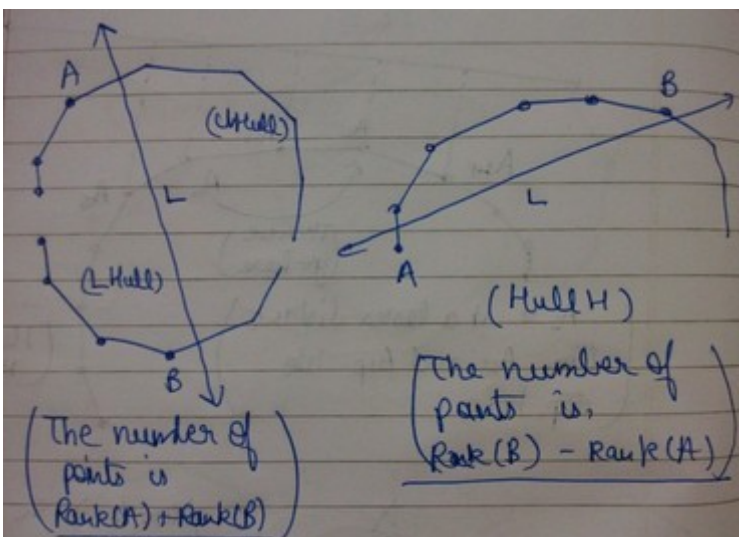 A
(UHull)
L
(LHull)
B
The number of
points is
Rank(A) + Rank(B)
B
L
A
(Hull H)
The number of
points is,
Rank(B) - Rank(A)